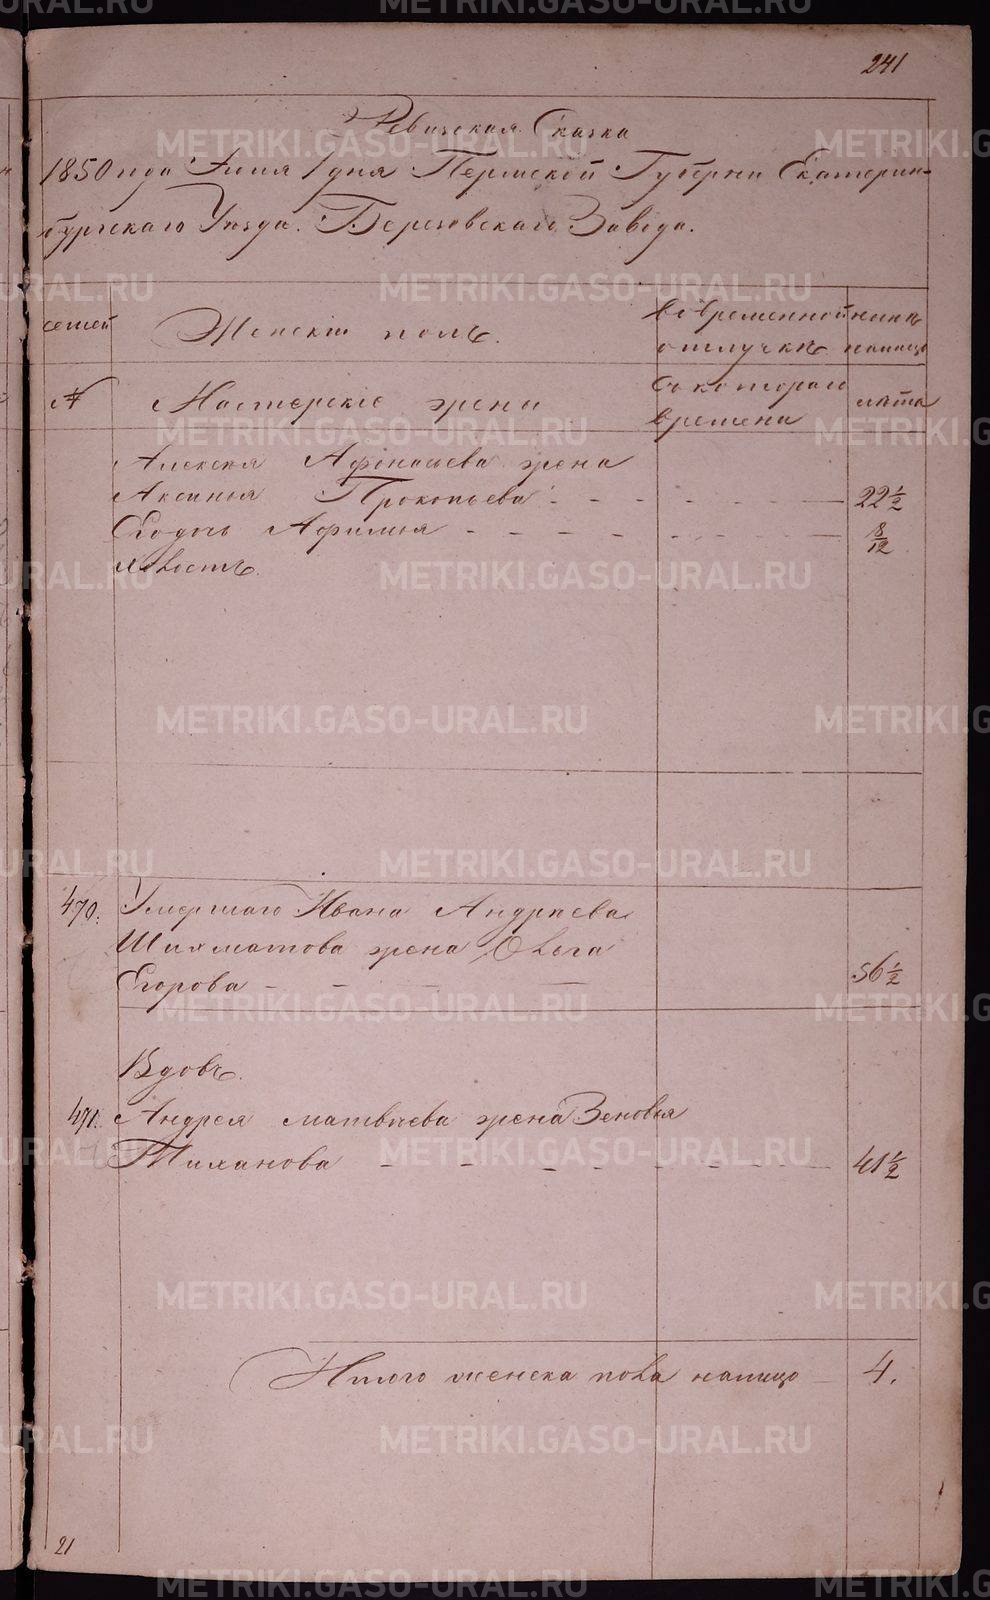 241
Ревизская Сказка
1850 года Июня 1 дня Пермской Губерни Екатерин-
бургскаго Уезда. Березовскаго Завода.
семей Женскiй полъ. во временной ныне
отлучкѣ налицо
№ Мастерскiе жены съ котораго лѣта
времени
Алексея Афонасьева жена
Аксинья Прокопьева 22 1/2
Его дочь Афимья 8/12
470. Умершаго Ивана Андреева
Шихматова жена Ольга
Егорова 56 1/2
Вдовъ.
471. Андрея Матвѣева жена Зеновья
41 1/2
Итого женска пола налицо 4.
21
METRIKI.GASO-URAL.RU